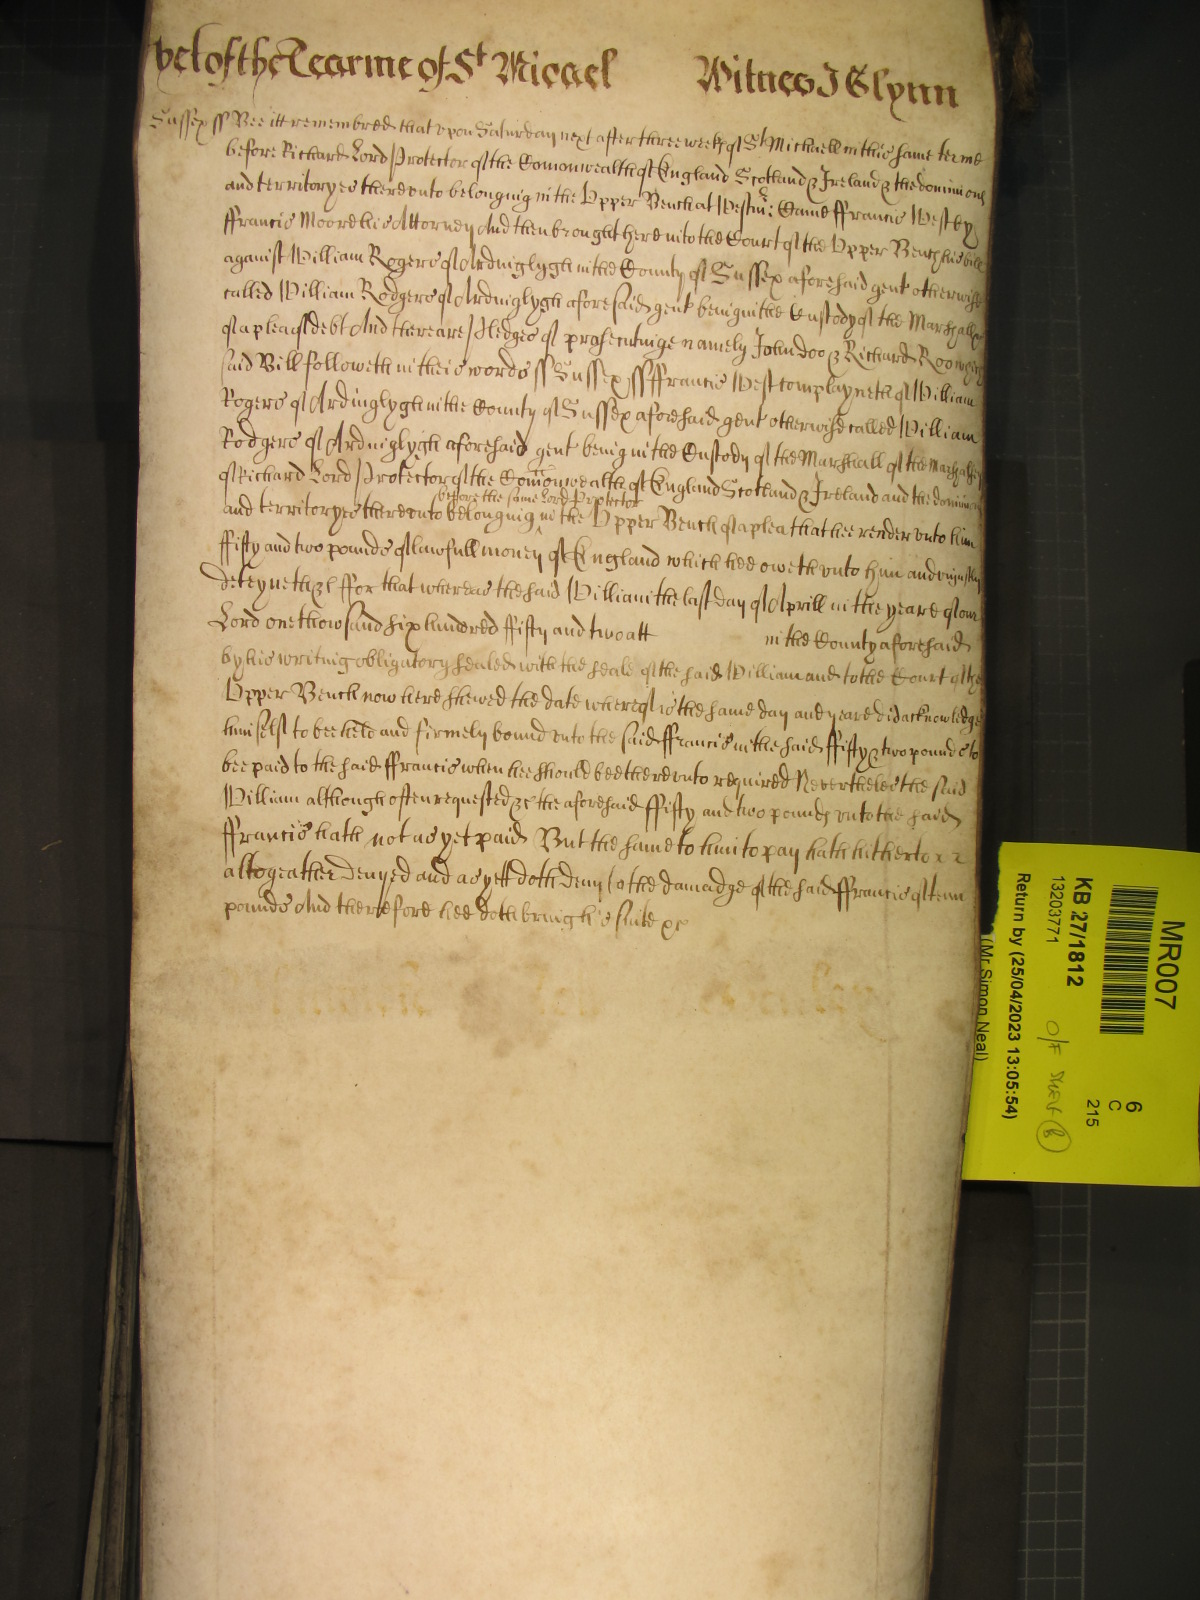 yet of the Tearme of St Micael Witnes J Glynn
Sussex ss Bee itt remembred that upon Saturday next after three weekes of St Michaell in this same terme
before Richard Lord Protector of the Comonwealth of England Scotland & Ireland & the dominions
and territoryes thereunto belonging in the Upper Bench at Westmr: Came ffrancis West by
ffrancis Moore his Attorney And then brought here into the Court of the Upper Bench his bill
against William Rogers of Ardinglygh in the County of Sussex aforesaid gent otherwise
called William Rodgers of Ardinglygh aforesaid gent being in the Custody of the Marshall &c
of a plea of debt And there are Pledges of prosecutinge namely John Doo & Richard Roo which
said Bill followeth in theis words ss Sussex ss ffrancis West complayneth of William
Rogers of Ardinglygh in the County of Sussex aforesaid gent otherwise called William
Rodgers of Ardinglygh aforesaid gent being in the Custody of the Marshall of the Marshalsey
of Richard Lord Protector of the Comonwealth of England Scotland & Ireland and the dominions
before the same Lord Protector
and territoryes thereunto belonging in the Upper Bench of a plea that hee render unto him
ffifty and two pounds of lawfull money of England which hee oweth unto him and uniustly
deteyneth &c ffor that whereas the said William the last day of Aprill in the yeare of our
Lord one thowsand six hundered ffifty and two att in the County aforesaid
by his writing obligatory sealed with the seale of the said William and to the Court of the
Upper Bench now here shewed the date whereof is the same day and yeare did acknowledge
himselfe to bee held and firmely bound unto the said ffrancis in the said ffifty & two pounds to
bee paid to the said ffrancis when hee should bee thereunto required Neverthelesse the said
William although often requested &c the aforesaid ffifty and two pounds unto the said
ffrancis hath not as yet paid But the same to him to pay hath hitherto
altogeather denyed and as yett doth deny to the damadge of the said ffrancis of tenn
pounds And therefore hee doth bring his suite &c
MR007
6
C
215
KB 27/1812
13203771
O/F
Return by (25/04/2023 13:05:54)
(Mr Simon Neal)